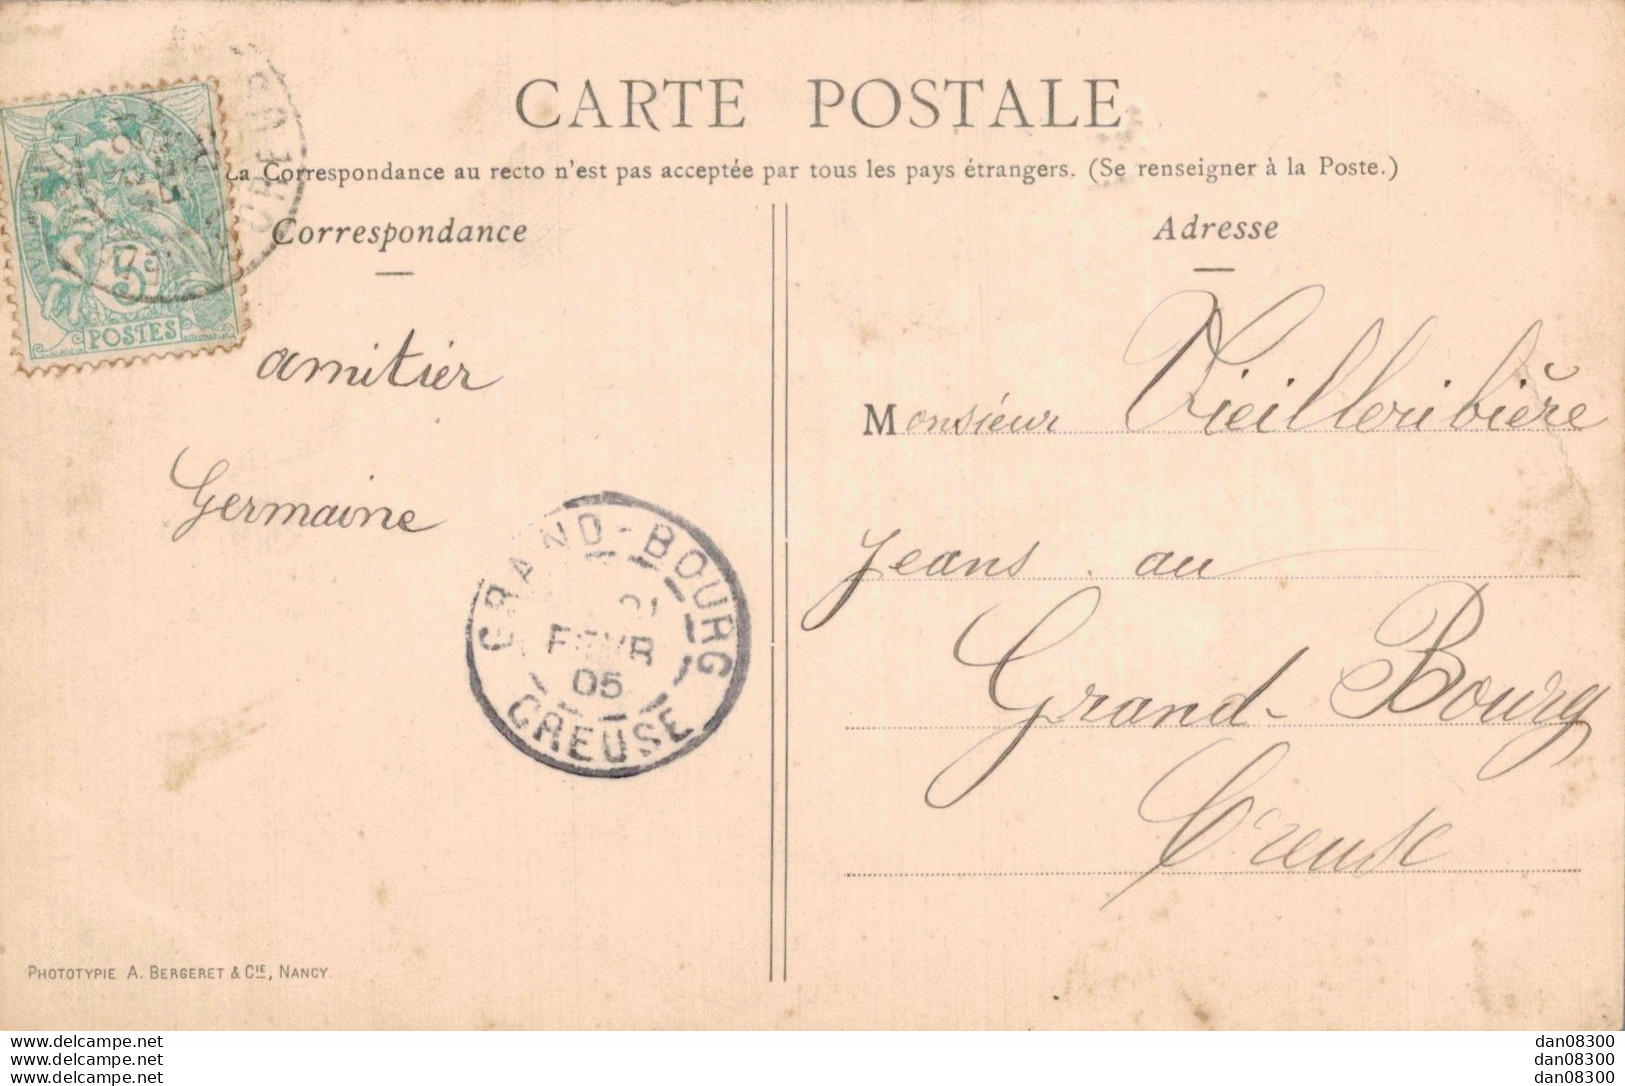 CARTE POSTALE
La Correspondance au recto n'est pas acceptée par tous les pays étrangers. (Se renseigner à la Poste.)
Correspondance
Adresse
5c
POSTES
CREUSE
amitier
Germaine
Monsieur Vieilleribière
Jeans au
Grand-Bourg
Creuse
GRAND-BOURG
21
FEVR
05
CREUSE
PHOTOTYPIE A. BERGERET & CIE, NANCY.
www.delcampe.net
www.delcampe.net
www.delcampe.net
dan08300
dan08300
dan08300